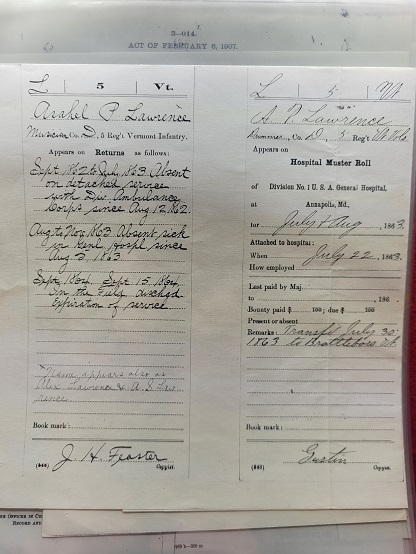 3—014.
ACT OF FEBRUARY 6, 1907.
L | 5 | Vt.
Asahel P Lawrence
Musician Co. D, 5 Reg't Vermont Infantry.
Appears on Returns as follows:
Sept 1862 to July 1863 Absent
on detached service
with Div Ambulance
Corps since Aug 12, 1862.
Aug to Nov 1863 Absent sick
in Genl Hospl since
Aug 3, 1863
Sept 1864. Sept 15, 1864
in the Field, dischgd
expiration of service
Name appears also as
Alex Lawrence & A. S. Law
rence
Book mark:
J. H. Feaster
Copyist.
L | 5 | Vt
A. P. Lawrence
Drummer, Co. D, 5 Reg't Vt. Vols.
Appears on
Hospital Muster Roll
of Division No. 1 U. S. A. General Hospital,
at Annapolis, Md.,
for July & Aug, 1863.
Attached to hospital:
When July 22, 1863.
How employed
Last paid by Maj.
to , 186 .
Bounty paid $ 100; due $ 100
Present or absent
Remarks: Transfd July 30,
1863 to Brattleboro Vt.
Book mark:
Copyist.
RECORD AND